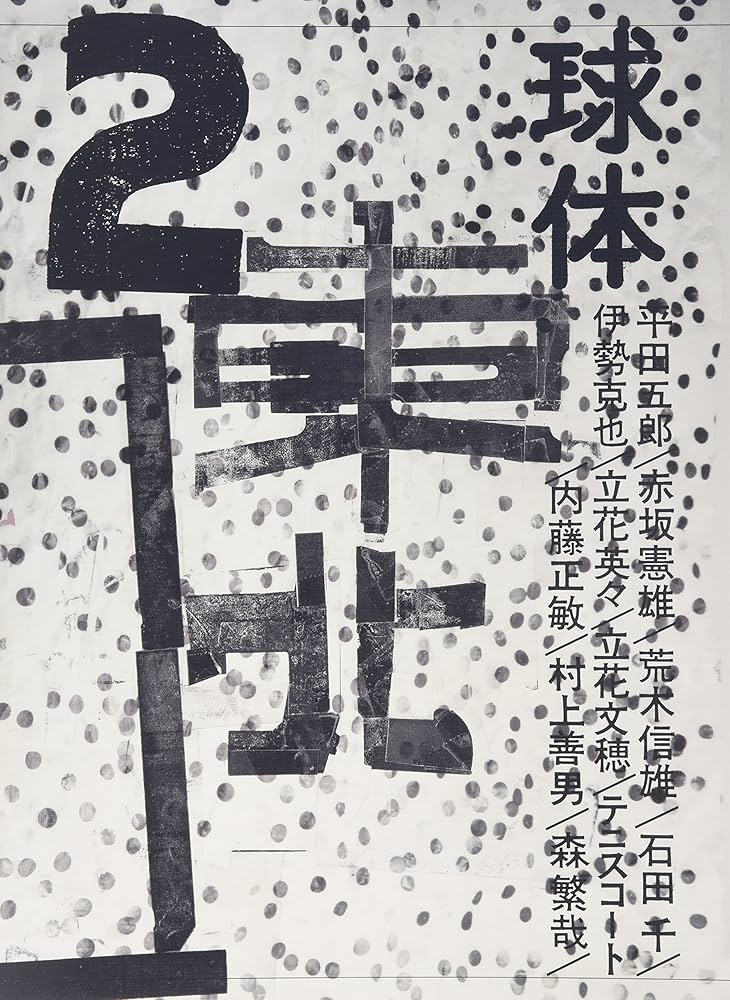 球体
2
東北
平田五郎/赤坂憲雄/荒木信雄/石田千/
伊勢克也/立花英々/立花文穂/テニスコート
/内藤正敏/村上善男/森繁哉/